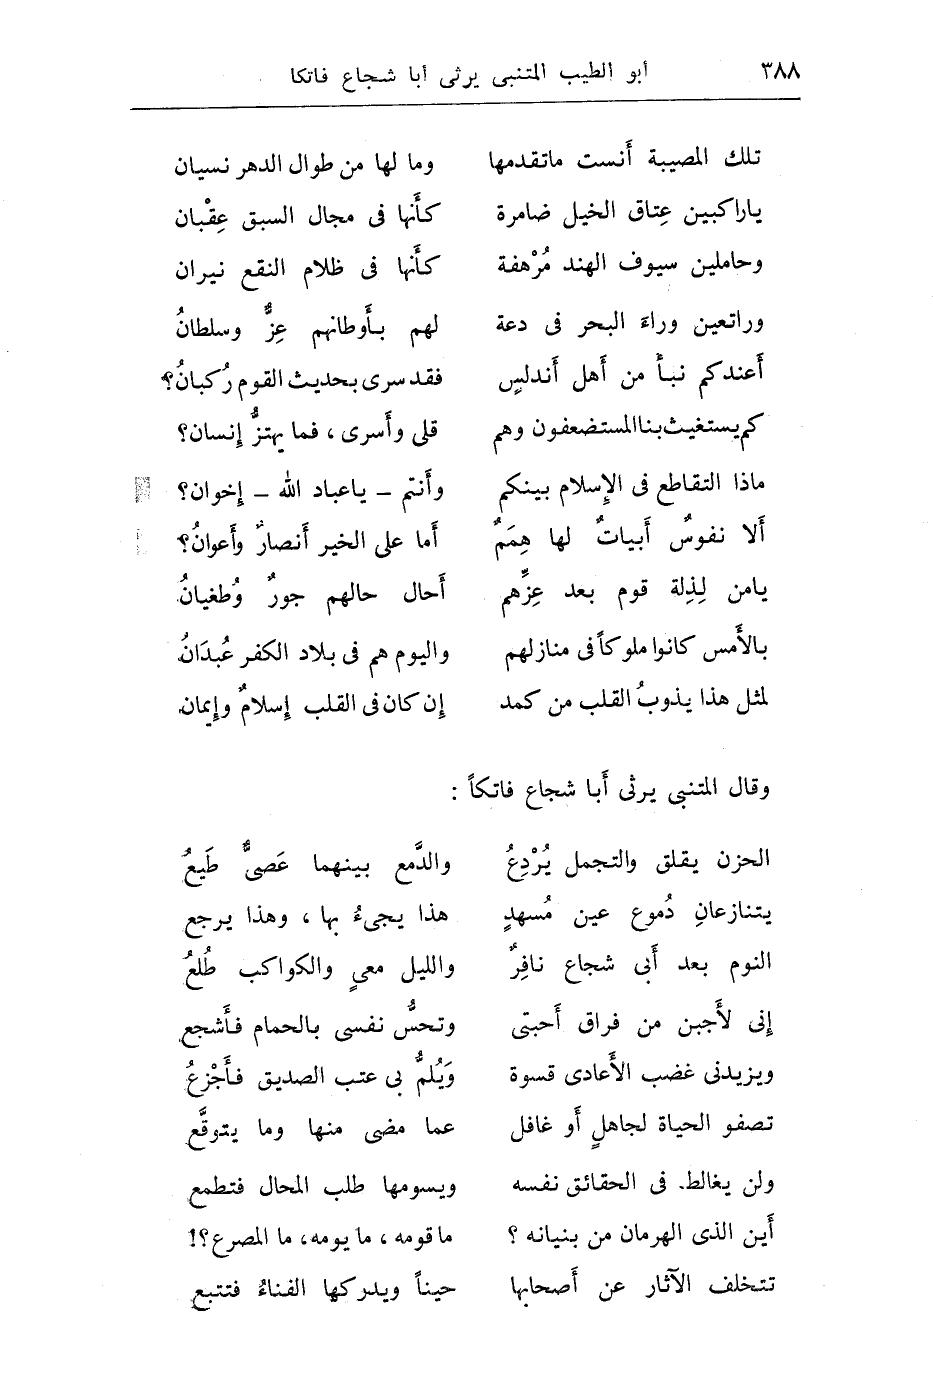 ٣٨٨ أبو الطيب المتنبى يرثى أبا شجاع فاتكا
تلك المصيبة أَنست ماتقدمها وما لها من طوال الدهر نسيان
ياراكبين عِتاق الخيل ضامرة كأَنها فى مجال السبق عِقْبان
وحاملين سيوف الهند مُرْهفة كأَنها فى ظلام النقع نيران
وراتعين وراءَ البحر فى دعة لهم بأَوطانهم عِزٌّ وسلطانُ
أَعندكم نبأ من أهل أَندلسٍ فقد سرى بحديث القوم رُكبانُ؟
كم يستغيث بنا المستضعفون وهم قلى وأَسرى ، فما يهتزُّ إنسان؟
ماذا التقاطع فى الإسلام بينكم وأَنتم – ياعباد الله – إخوان؟
أَلا نفوسٌ أَبياتٌ لها هِمَمٌ أَما على الخير أَنصارٌ وأَعوانُ؟
يامن لِذِلة قوم بعد عِزِّهم أَحال حالهم جورٌ وُطغيانُ
بالأَمس كانوا ملوكاً فى منازلهم واليوم هم فى بلاد الكفر عُبدَانُ
لمثل هذا يذوبُ القلب من كمد إن كان فى القلب إسلامٌ وإيمان
وقال المتنبى يرثى أَبا شجاع فاتكاً :
الحزن يقلق والتجمل يُرْدِعُ والدَّمع بينهما عَصىٌّ طَيعُ
يتنازعانِ دُموع عين مُسهدٍ هذا يجىءُ بها ، وهذا يرجع
النوم بعد أَبى شجاع نافِرٌ والليل معىٍ والكواكب طُلعُ
إنى لأَجبن من فراق أَحبتى وتحسُّ نفسى بالحمام فأَشجع
ويزيدنى غضب الأَعادى قسوة وَيُلمُّ بى عتب الصديق فأَجْزعُ
تصفو الحياة لجاهلٍ أَو غافل عما مضى منها وما يتوقَّع
ولن يغالط. فى الحقائق نفسه ويسومها طلب المحال فتطمع
أَين الذى الهرمان من بنيانه ؟ ما قومه ، ما يومه، ما المصرع؟!
تتخلف الآثار عن أَصحابها حيناً ويدركها الفناءُ فتتبع